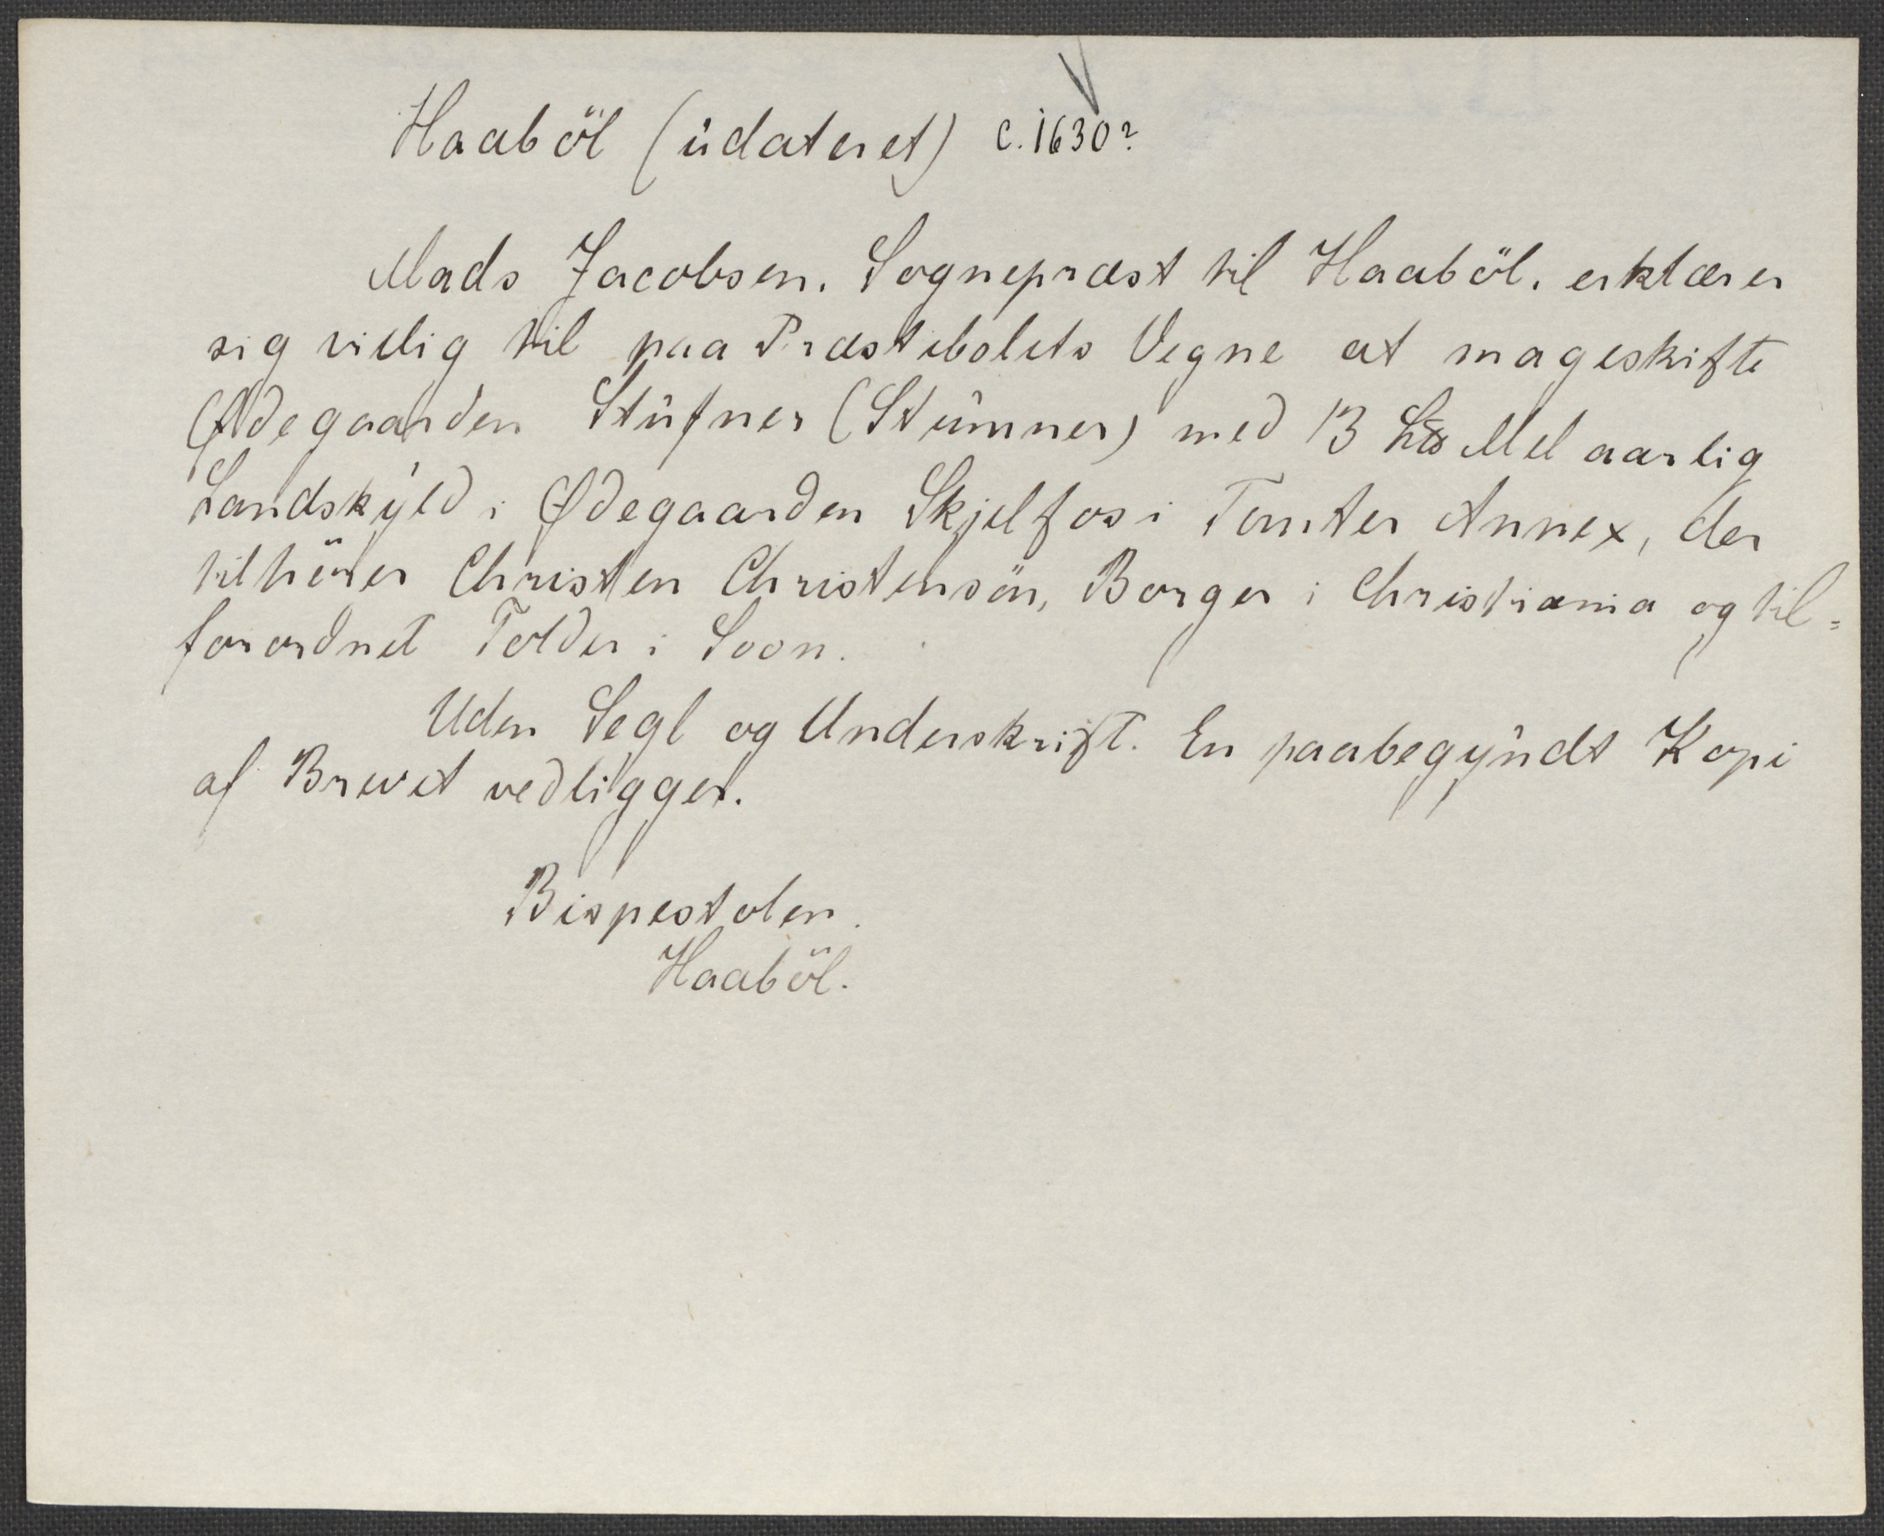 Haaböl (udateret) c. 1630?
Mads Jacobsen, Sognepræst til Haaböl, erklærer
sig villig til paa Præstebolets Vegne at mageskifte
Ødegaarden Stufner (Stumner) med 13 L℔ Mel aarlig
Landskyld i Ødegaarden Skjelfos i Tomter Annex, der
tilhörer Christen Christensön, Borger i Christiania og til=
forordnet Tolder i Soon.
Uden Segl og Underskrift. En paabegyndt Kopi
af Brevet vedligger.
Bispestolen.
Haaböl.